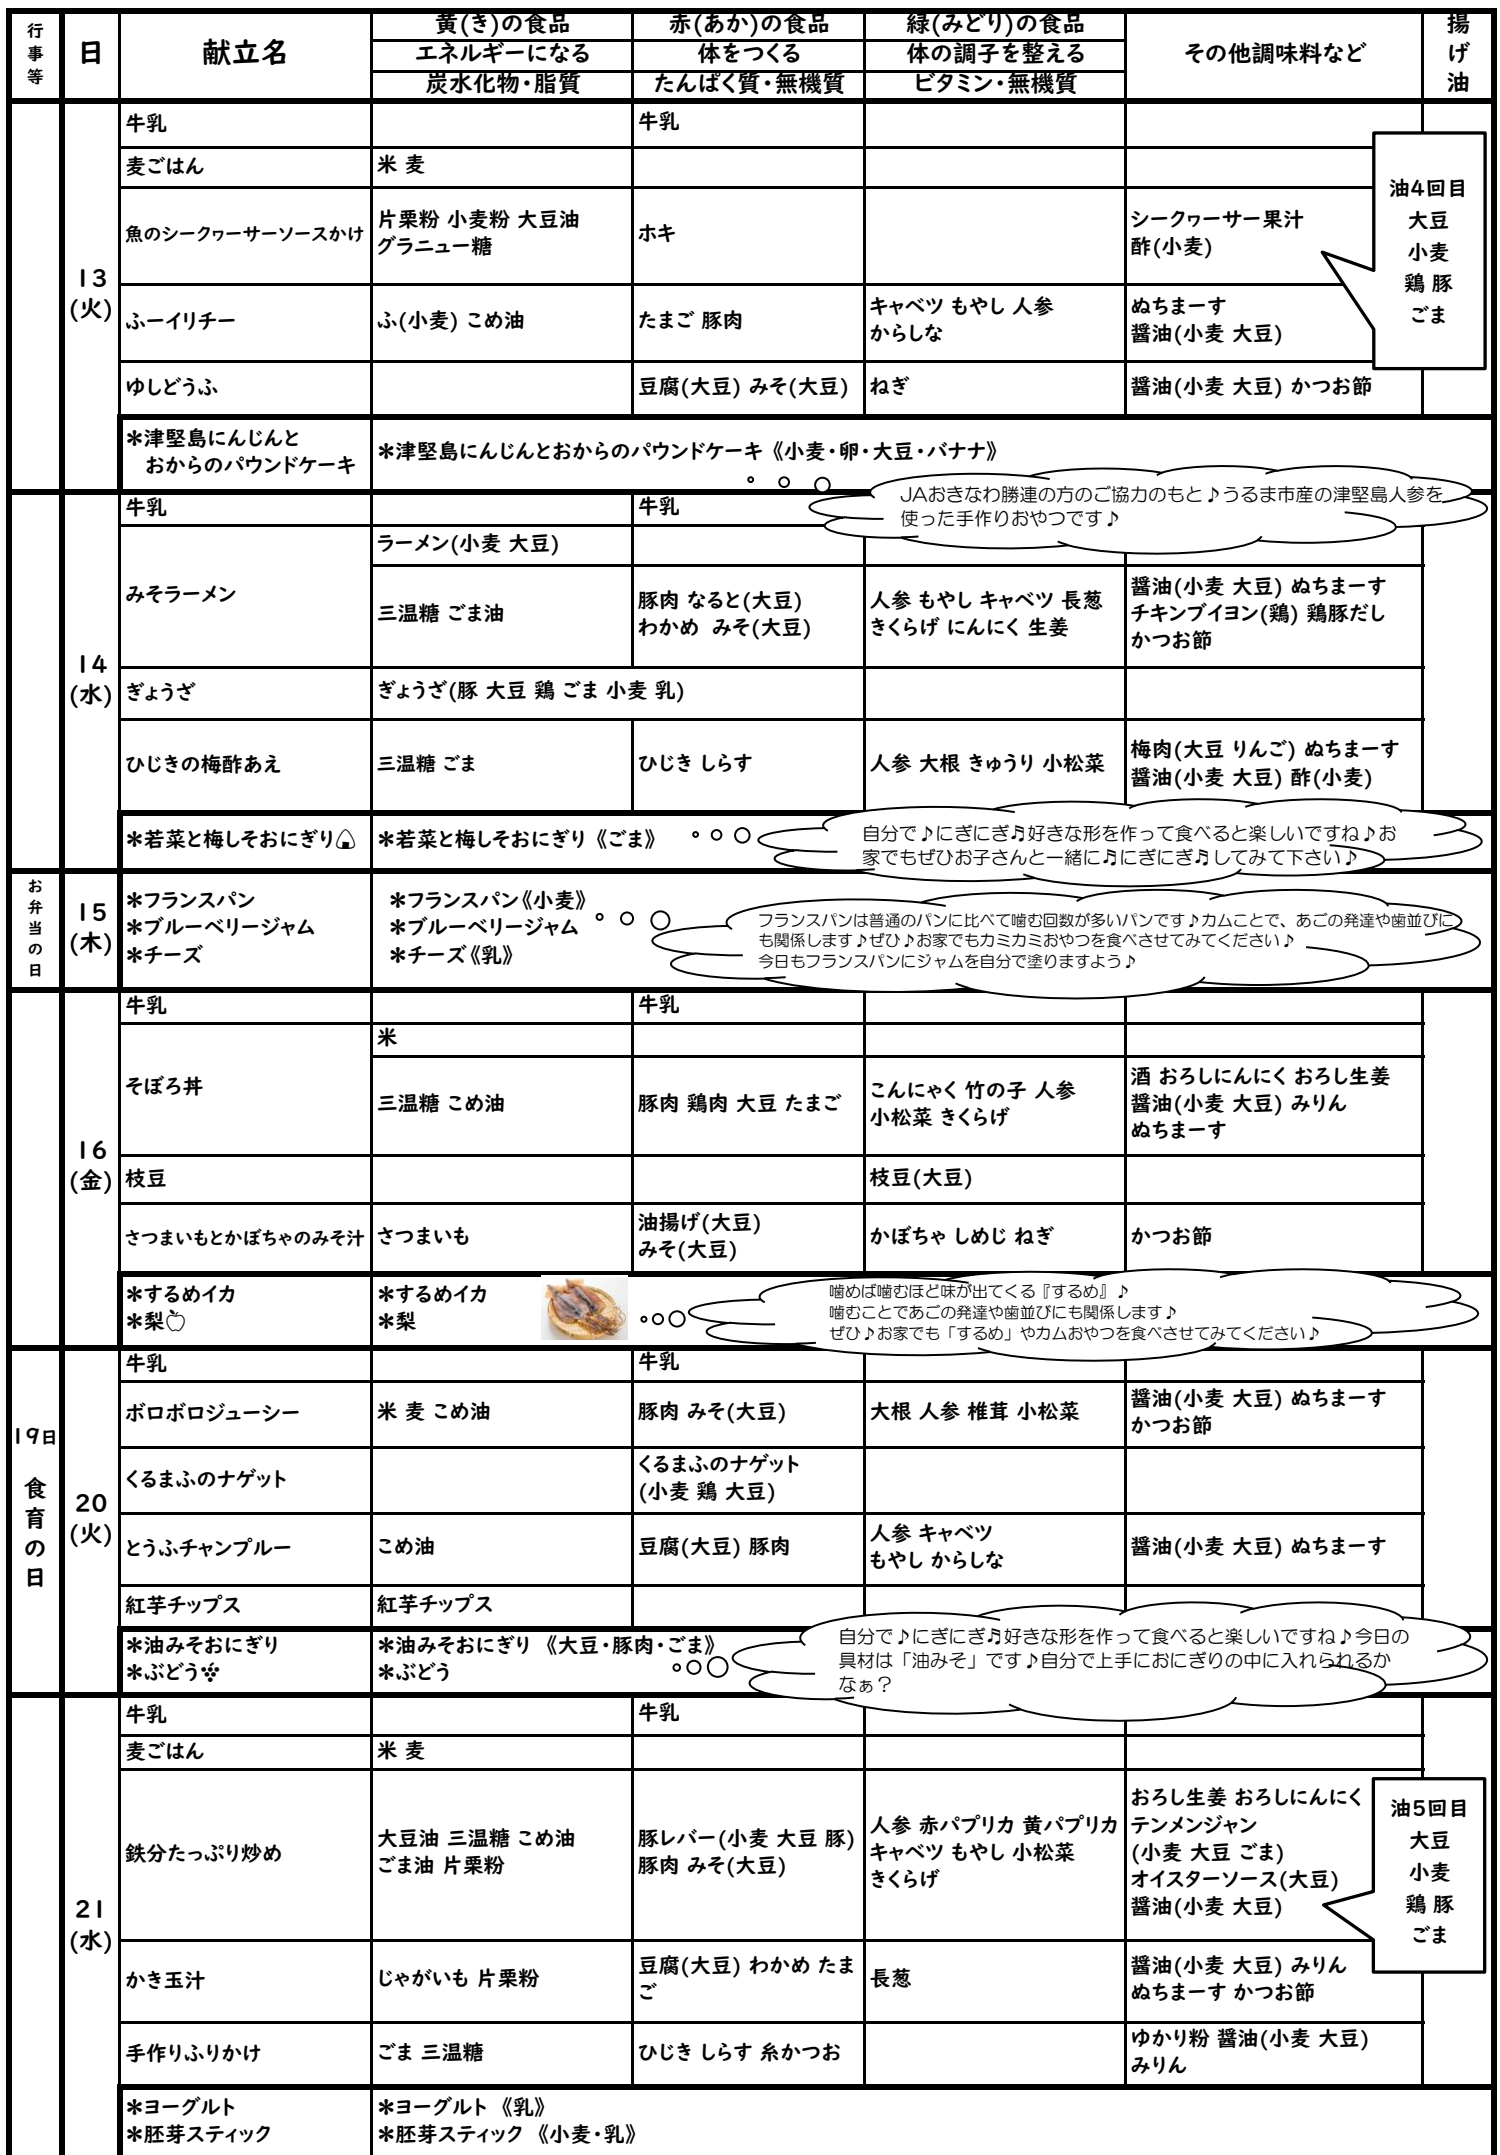 行事等
日
献立名
黄(き)の食品
エネルギーになる
炭水化物・脂質
赤(あか)の食品
体をつくる
たんぱく質・無機質
緑(みどり)の食品
体の調子を整える
ビタミン・無機質
その他調味料など
揚げ油
13
(火)
牛乳
牛乳
麦ごはん
米 麦
魚のシークヮーサーソースかけ
片栗粉 小麦粉 大豆油
グラニュー糖
ホキ
シークヮーサー果汁
酢(小麦)
油4回目
大豆
小麦
鶏 豚
ごま
ふーイリチー
ふ(小麦) こめ油
たまご 豚肉
キャベツ もやし 人参
からしな
ぬちまーす
醤油(小麦 大豆)
ゆしどうふ
豆腐(大豆) みそ(大豆)
ねぎ
醤油(小麦 大豆) かつお節
＊津堅島にんじんと
おからのパウンドケーキ
＊津堅島にんじんとおからのパウンドケーキ《小麦・卵・大豆・バナナ》
JAおきなわ勝連の方のご協力のもと♪うるま市産の津堅島人参を
使った手作りおやつです♪
14
(水)
牛乳
牛乳
みそラーメン
ラーメン(小麦 大豆)
三温糖 ごま油
豚肉 なると(大豆)
わかめ みそ(大豆)
人参 もやし キャベツ 長葱
きくらげ にんにく 生姜
醤油(小麦 大豆) ぬちまーす
チキンブイヨン(鶏) 鶏豚だし
かつお節
ぎょうざ
ぎょうざ(豚 大豆 鶏 ごま 小麦 乳)
ひじきの梅酢あえ
三温糖 ごま
ひじき しらす
人参 大根 きゅうり 小松菜
梅肉(大豆 りんご) ぬちまーす
醤油(小麦 大豆) 酢(小麦)
＊若菜と梅しそおにぎり🍙
＊若菜と梅しそおにぎり《ごま》
自分で♪にぎにぎ♬好きな形を作って食べると楽しいですね♪お
家でもぜひお子さんと一緒に♬にぎにぎ♬してみて下さい♪
お弁当の日
15
(木)
＊フランスパン
＊ブルーベリージャム
＊チーズ
＊フランスパン《小麦》
＊ブルーベリージャム
＊チーズ《乳》
フランスパンは普通のパンに比べて噛む回数が多いパンです♪カムことで、あごの発達や歯並びに
も関係します♪ぜひ♪お家でもカミカミおやつを食べさせてみてください♪
今日もフランスパンにジャムを自分で塗りますよう♪
16
(金)
牛乳
牛乳
そぼろ丼
米
三温糖 こめ油
豚肉 鶏肉 大豆 たまご
こんにゃく 竹の子 人参
小松菜 きくらげ
酒 おろしにんにく おろし生姜
醤油(小麦 大豆) みりん
ぬちまーす
枝豆
枝豆(大豆)
さつまいもとかぼちゃのみそ汁
さつまいも
油揚げ(大豆)
みそ(大豆)
かぼちゃ しめじ ねぎ
かつお節
＊するめイカ
＊梨🍎
＊するめイカ
＊梨
噛めば噛むほど味が出てくる『するめ』♪
噛むことであごの発達や歯並びにも関係します♪
ぜひ♪お家でも「するめ」やカムおやつを食べさせてみてください♪
19日
食育の日
20
(火)
牛乳
牛乳
ボロボロジューシー
米 麦 こめ油
豚肉 みそ(大豆)
大根 人参 椎茸 小松菜
醤油(小麦 大豆) ぬちまーす
かつお節
くるまふのナゲット
くるまふのナゲット
(小麦 鶏 大豆)
とうふチャンプルー
こめ油
豆腐(大豆) 豚肉
人参 キャベツ
もやし からしな
醤油(小麦 大豆) ぬちまーす
紅芋チップス
紅芋チップス
＊油みそおにぎり
＊ぶどう🍇
＊油みそおにぎり 《大豆・豚肉・ごま》
＊ぶどう
自分で♪にぎにぎ♬好きな形を作って食べると楽しいですね♪今日の
具材は「油みそ」です♪自分で上手におにぎりの中に入れられるか
なぁ？
21
(水)
牛乳
牛乳
麦ごはん
米 麦
鉄分たっぷり炒め
大豆油 三温糖 こめ油
ごま油 片栗粉
豚レバー(小麦 大豆 豚)
豚肉 みそ(大豆)
人参 赤パプリカ 黄パプリカ
キャベツ もやし 小松菜
きくらげ
おろし生姜 おろしにんにく
テンメンジャン
(小麦 大豆 ごま)
オイスターソース(大豆)
醤油(小麦 大豆)
油5回目
大豆
小麦
鶏 豚
ごま
かき玉汁
じゃがいも 片栗粉
豆腐(大豆) わかめ たま
ご
長葱
醤油(小麦 大豆) みりん
ぬちまーす かつお節
手作りふりかけ
ごま 三温糖
ひじき しらす 糸かつお
ゆかり粉 醤油(小麦 大豆)
みりん
＊ヨーグルト
＊胚芽スティック
＊ヨーグルト 《乳》
＊胚芽スティック 《小麦・乳》